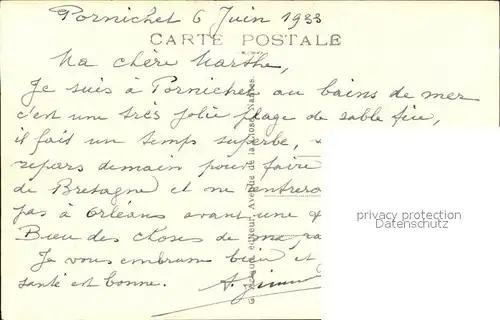 Pornichet 6 Juin 1933
CARTE POSTALE
Ma chère Marthe,
Je suis à Pornichet au bains de mer
c'est une très jolie plage de sable fin,
il fait un temps superbe,
repars demain pour faire
de Bretagne et ne
pas à Orléans avant une
Bien des choses de ma
Je vous embrasse bien et
santé est bonne. A.
éditeur, Avenue de la
privacy protection
Datenschutz